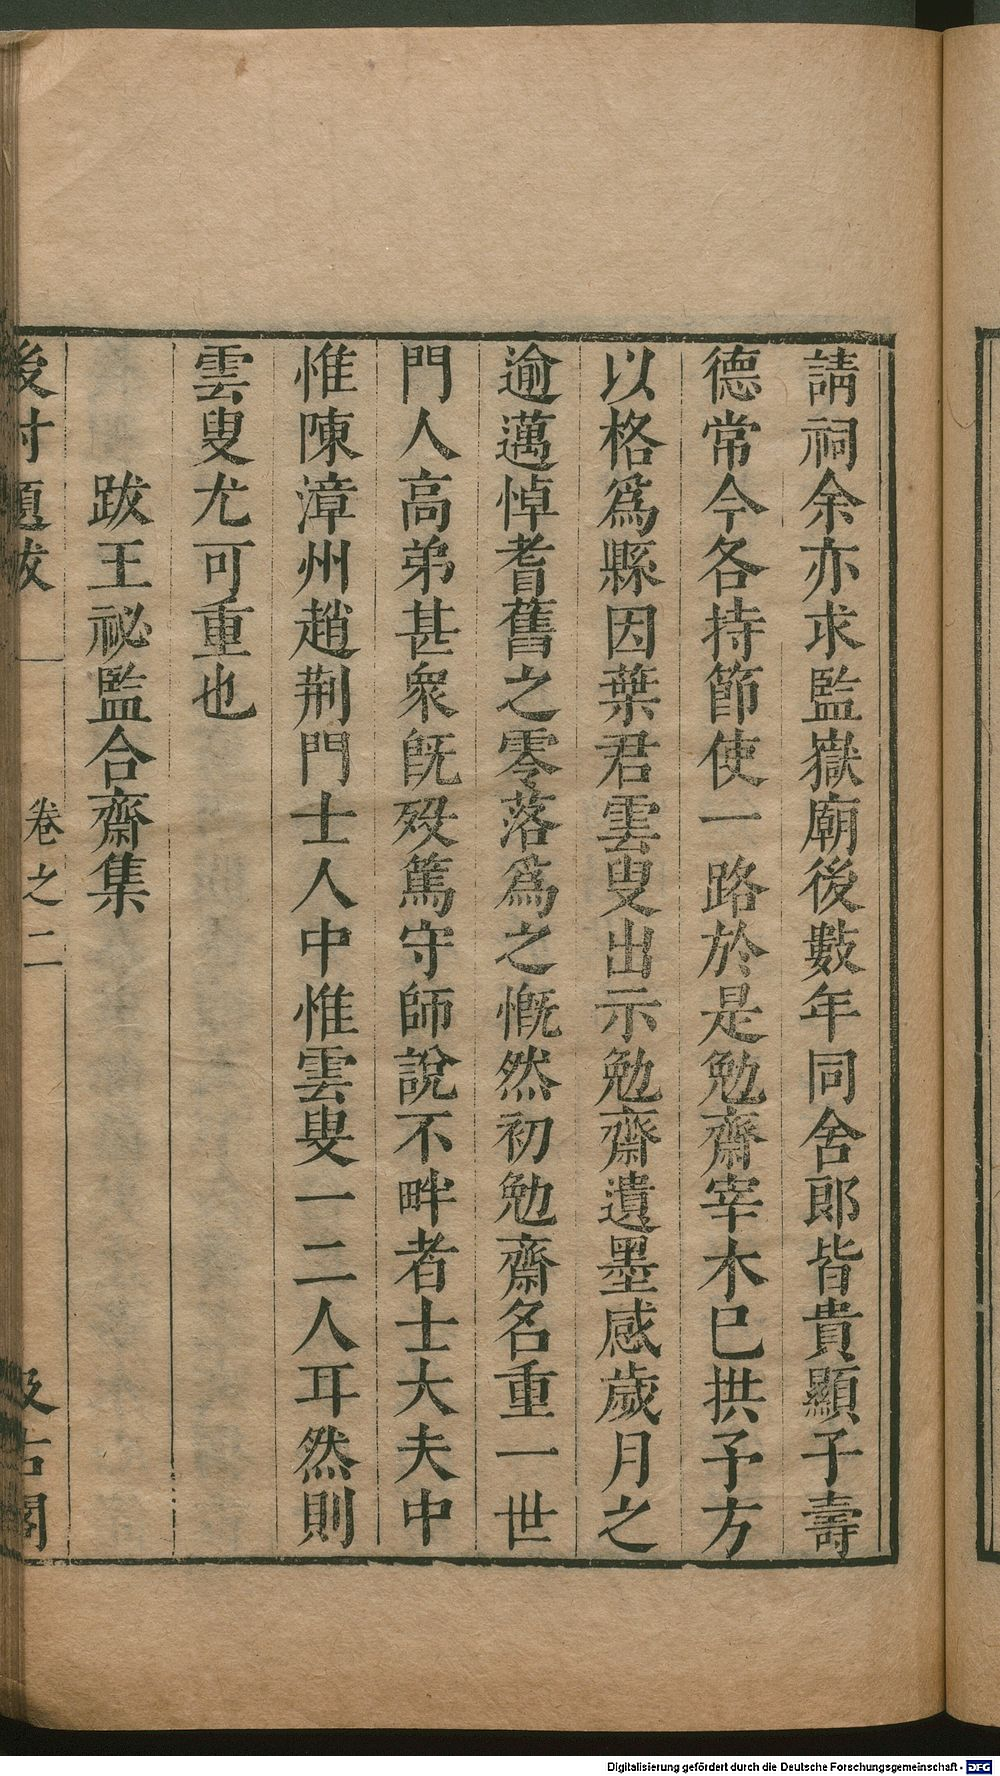 請祠余亦求監嶽廟後數年同舍郎皆貴顯子壽
德常今各持節使一路於是勉齋宰木已拱予方
以格爲縣因葉君雲叟出示勉齋遺墨感歲月之
逾邁悼耆舊之零落爲之慨然初勉齋名重一世
門人高弟甚衆旣歿篤守師說不畔者士大夫中
惟陳漳州趙荆門士人中惟雲叟一二人耳然則
雲叟尤可重也
跋王祕監合齋集
後村題跋 卷之二 汲古閣
Digitalisierung gefördert durch die Deutsche Forschungsgemeinschaft - DFG